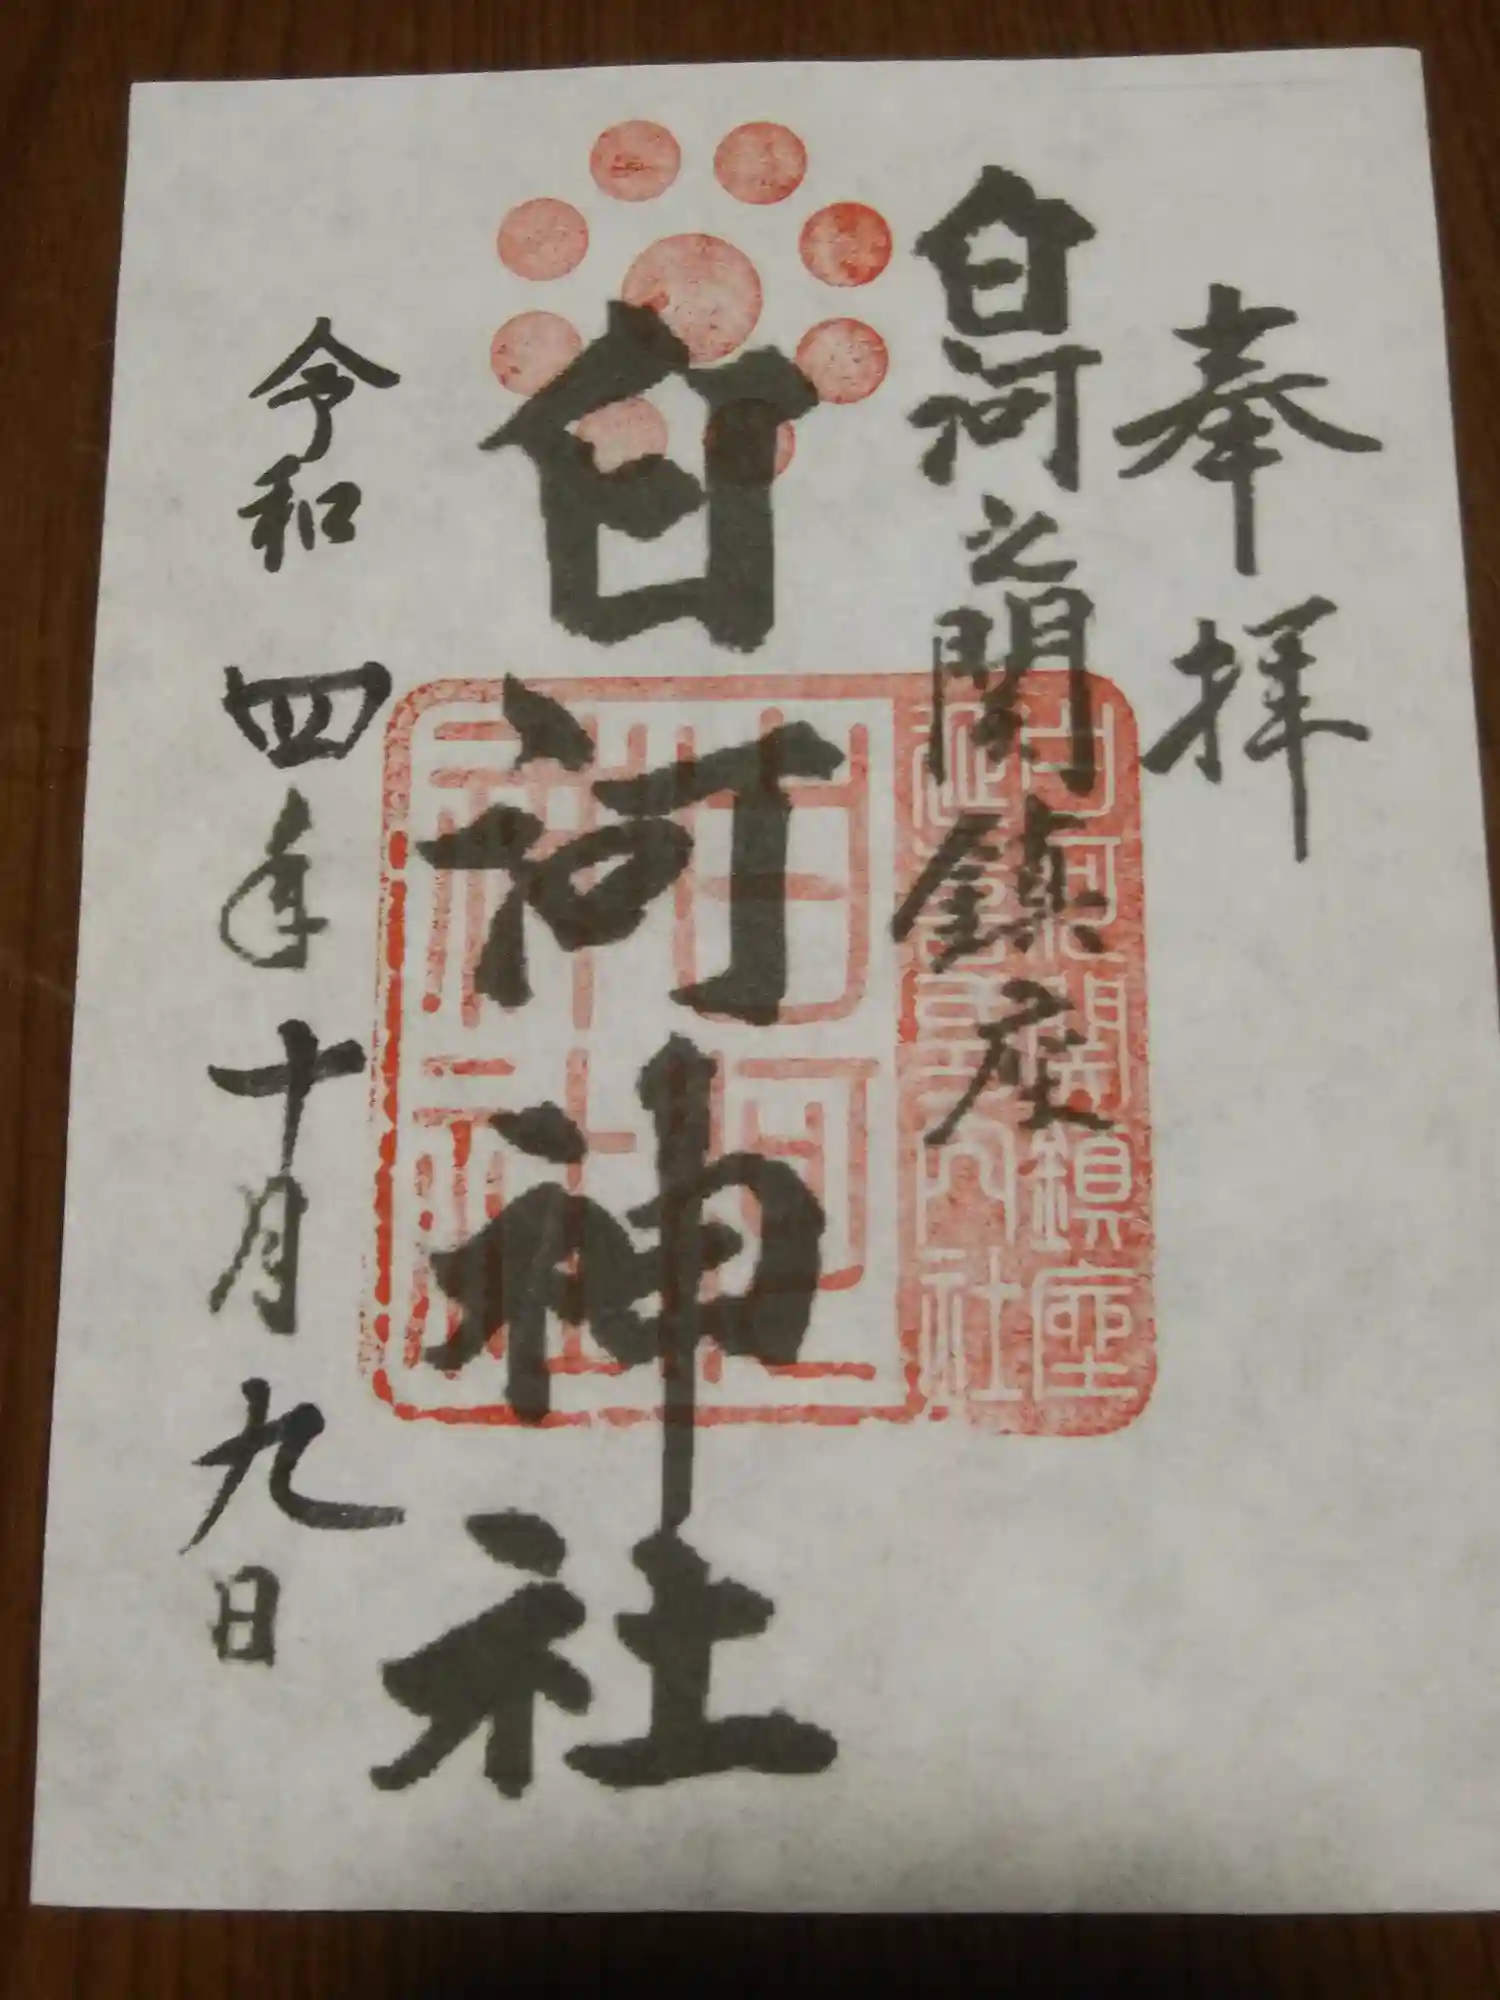 奉拝
白河之関鎮座
白河神社
令和四年十月九日
白河関鎮座
延喜式内社
白河
神社